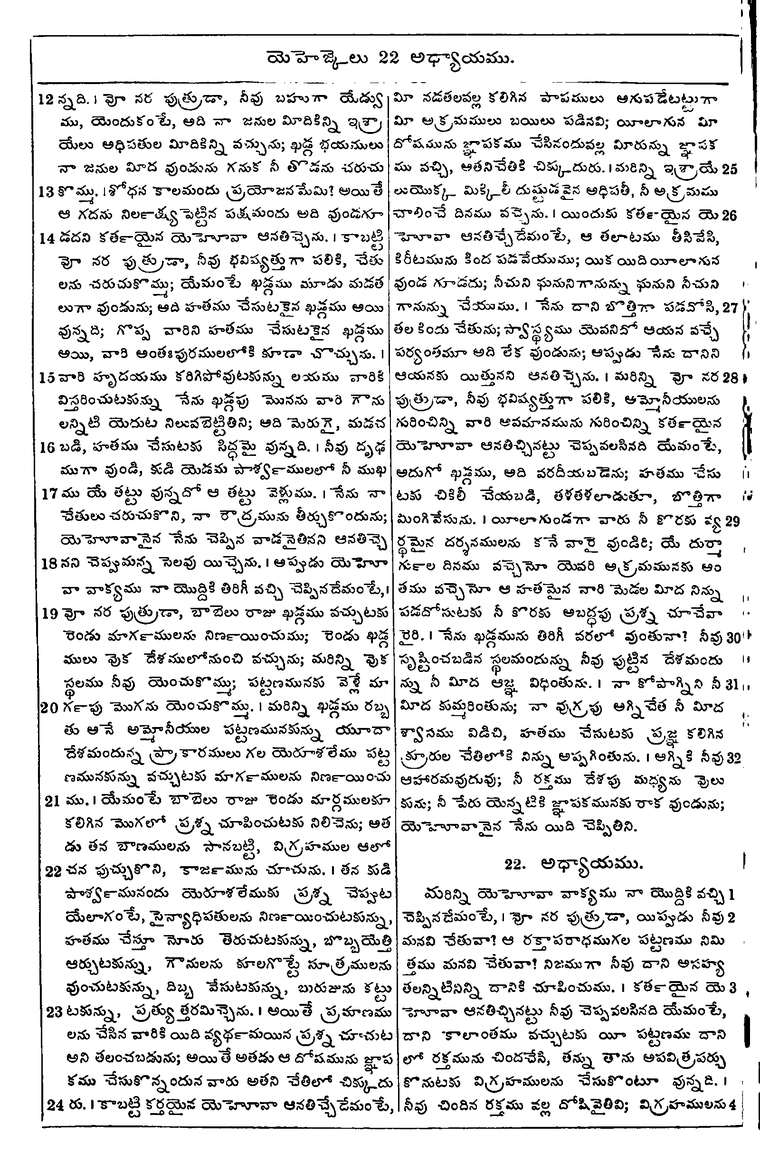 యెహెజ్కేలు 22 అధ్యాయము.
12 న్నది. । వో నర పుత్రుడా, నీవు బహుగా యేడ్వు
ము, యెందుకంటే, అది నా జనుల మిాదికిన్ని ఇశ్రా
యేలు అధిపతుల మిాదికిన్ని వచ్చును; ఖడ్గ భయములు
నా జనుల మిాద వుండును గనుక నీ తొడను చరుచు
13 కొమ్ము. । శోధన కాలమందు ప్రయోజనమేమి? అయితే
ఆ గదను నిర్లక్ష్యపెట్టిన పక్షమందు అది వుండగూ
14 డదని కర్తయైన యెహోవా ఆనతిచ్చెను. । కాబట్టి
వో నర పుత్రుడా, నీవు భవిష్యత్తుగా పలికి, చేతు
లను చరుచుకొమ్ము; యేమంటే ఖడ్గము మూడు మడత
లుగా వుండును; అది హతము చేసుటకైన ఖడ్గము అయి
వున్నది; గొప్ప వారిని హతము చేసుటకైన ఖడ్గము
అయి, వారి అంతఃపురములలోకి కూడా చొచ్చును. ।
15 వారి హృదయము కరిగిపోవుటకున్ను లయము వారికి
విస్తరించుటకున్ను నేను ఖడ్గపు మొనను వారి గౌను
లన్నిటి యెదుట నిలువబెట్టితిని; అది మెరుగై, మడచ
16 బడి, హతము చేసుటకు సిద్ధమై వున్నది. । నీవు దృఢ
ముగా వుండి, కుడి యెడమ పార్శ్వములలో నీ ముఖ
17 ము యే తట్టు వున్నదో ఆ తట్టు వెళ్లుము. । నేను నా
చేతులు చరుచుకొని, నా రౌద్రమును తీర్చుకొందును;
యెహోవానైన నేను చెప్పిన వాడనైతినని ఆనతిచ్చె
18 నని చెప్పుమన్న సెలవు యిచ్చెను. । అప్పుడు యెహో
వా వాక్యము నా యొద్దికి తిరిగీ వచ్చి చెప్పినదేమంటే, ।
19 వో నర పుత్రుడా, బాబేలు రాజు ఖడ్గము వచ్చుటకు
రెండు మార్గములను నిర్ణయించుము; రెండు ఖడ్గ
ములు వొక దేశములోనుంచి వచ్చును; మరిన్ని వొక
స్థలము నీవు యెంచుకొమ్ము; పట్టణమునకు వెళ్లే మా
20 ర్గపు మొగను యెంచుకొమ్ము. । మరిన్ని ఖడ్గము రబ్బ
తు అనే అమ్మోనీయుల పట్టణమునకున్ను యూదా
దేశమందున్న ప్రాకారములు గల యెరూశలేము పట్ట
ణమునకున్ను వచ్చుటకు మార్గములను నిర్ణయించు
21 ము. । యేమంటే బాబేలు రాజు రెండు మార్గములకూ
కలిగిన మొగలో ప్రశ్న చూపించుటకు నిలిచెను; అత
డు తన బాణములను సానబట్టి, విగ్రహముల ఆలో
22 చన పుచ్చుకొని, కార్జమును చూచును. । తన కుడి
పార్శ్వమునందు యెరూశలేముకు ప్రశ్న చెప్పుట
యేలాగంటే, సైన్యాధిపతులను నిర్ణయించుటకున్ను,
హతము చేస్తూ నోరు తెరుచుటకున్ను, బొబ్బయెత్తి
ఆర్చుటకున్ను, గౌనులను కూలగొట్టే సూత్రములను
వుంచుటకున్ను, దిబ్బ వేసుటకున్ను, బురుజును కట్టు
23 టకున్ను, ప్రత్యుత్తరమిచ్చెను. । అయితే ప్రమాణము
లను చేసిన వారికి యిది వ్యర్థమయిన ప్రశ్న చూచుట
అని తలంచబడును; అయితే అతడు ఆ దోషమును జ్ఞాప
కము చేసుకొన్నందున వారు అతని చేతిలో చిక్కుదు
24 రు. । కాబట్టి కర్తయైన యెహోవా ఆనతిచ్చేదేమంటే,
మిా నడతలవల్ల కలిగిన పాపములు అగుపడేటట్టుగా
మిా అక్రమములు బయిలు పడినవి; యీలాగున మిా
దోషమును జ్ఞాపకము చేసినందువల్ల మిారున్ను జ్ఞాపక
ము వచ్చి, అతనిచేతికి చిక్కుదురు. । మరిన్ని ఇశ్రాయే 25
లుయొక్క మిక్కిలీ దుష్టుడవైన అధిపతీ, నీ అక్రమము
చాలించే దినము వచ్చెను. । యిందుకు కర్తయైన యె 26
హోవా ఆనతిచ్చేదేమంటే, ఆ తలాటము తీసివేసి,
కిరీటమును కింద పడవేయుము; యిక యిది యీలాగున
వుండ గూడదు; నీచుని ఘనునిగానున్ను ఘనుని నీచుని
గానున్ను చేయుము. । నేను దాని బొత్తిగా పడదోసి, 27
తల కిందు చేతును; స్వాస్థ్యము యెవనిదో ఆయన వచ్చే
పర్యంతమూ అది లేక వుండును; అప్పుడు నేను దానిని
ఆయనకు యిత్తునని ఆనతిచ్చెను. । మరిన్ని వో నర 28
పుత్రుడా, నీవు భవిష్యత్తుగా పలికి, అమ్మోనీయులను
గురించిన్ని వారి అవమానమును గురించిన్ని కర్తయైన
యెహోవా ఆనతిచ్చినట్టు చెప్పవలసినది యేమంటే,
అదుగో ఖడ్గము, అది వరదీయబడెను; హతము చేసు
టకు చికిలీ చేయబడి, తళతళలాడుతూ, బొత్తిగా
మింగివేసును. । యీలాగుండగా వారు నీ కొరకు వ్య 29
ర్థమైన దర్శనములను కనే వారై వుండిరి; యే దుర్మా
ర్గుల దినము వచ్చెనో యెవరి అక్రమమునకు అం
తము వచ్చెనో ఆ హతమైన వారి మెడల మిాద నిన్ను
పడదోసుటకు నీ కొరకు అబద్ధపు ప్రశ్న చూచేవా
రైరి. । నేను ఖడ్గమును తిరిగీ వరలో వుంతునా? నీవు 30
సృష్టించబడిన స్థలమందున్ను నీవు పుట్టిన దేశమందు
న్ను నీ మిాద ఆజ్ఞ విధింతును. । నా కోపాగ్నిని నీ 31
మిాద కుమ్మరింతును; నా వుగ్రపు అగ్నిచేత నీ మిాద
శ్వాసము విడిచి, హతము చేసుటకు ప్రజ్ఞ కలిగిన
క్రూరుల చేతిలోకి నిన్ను అప్పగింతును. । అగ్నికి నీవు 32
ఆహారమవుదువు; నీ రక్తము దేశపు మధ్యను వొలు
కును; నీ పేరు యెన్నటికీ జ్ఞాపకమునకు రాక వుండును;
యెహోవానైన నేను యిది చెప్పితిని.
22. అధ్యాయము.
మరిన్ని యెహోవా వాక్యము నా యొద్దికి వచ్చి 1
చెప్పినదేమంటే, । వో నర పుత్రుడా, యిప్పుడు నీవు 2
మనవి చేతువా? ఆ రక్తాపరాధముగల పట్టణము నిమి
త్తము మనవి చేతువా? నిజముగా నీవు దాని అసహ్య
తలన్నిటినిన్ని దానికి చూపించుము. । కర్తయైన యె 3
హోవా ఆనతిచ్చినట్టు నీవు చెప్పవలసినది యేమంటే,
దాని కాలాంతము వచ్చుటకు యీ పట్టణము దాని
లో రక్తమును చిందచేసి, తన్ను తాను అపవిత్రపర్చు
కొనుటకు విగ్రహములను చేసుకొంటూ వున్నది. ।
నీవు చిందిన రక్తము వల్ల దోషివైతివి; విగ్రహములను 4